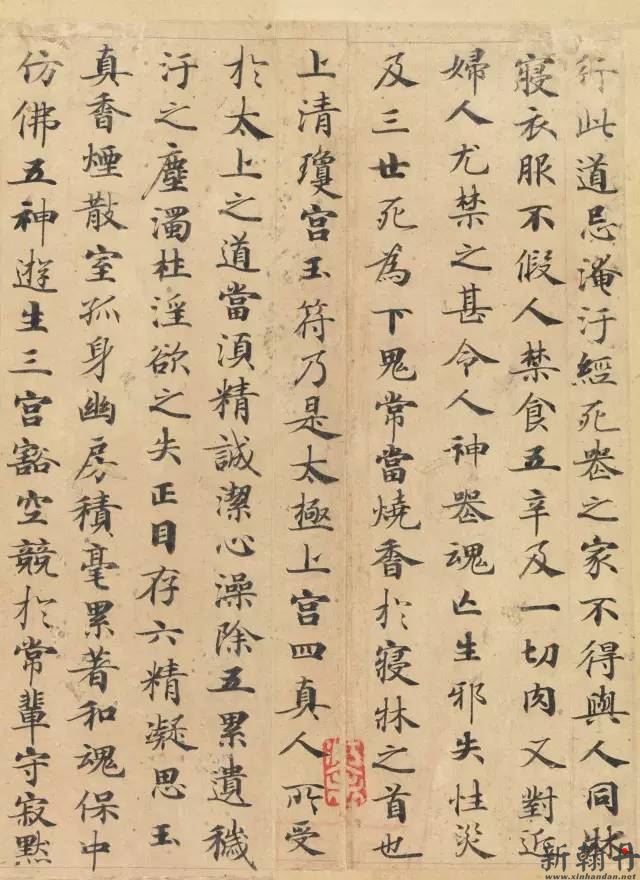 行此道忌淹汙經死喪之家不得與人同牀
寢衣服不假人禁食五辛及一切肉又對近
婦人尤禁之甚令人神喪魂亡生邪失性災
及三世死為下鬼常當燒香於寢牀之首也
上清瓊宮玉符乃是太極上宮四真人所受
於太上之道當須精誠潔心澡除五累遺穢
汙之塵濁杜淫欲之失正目存六精凝思玉
真香煙散室孤身幽房積毫累著和魂保中
仿佛五神遊生三宮豁空競於常輩守寂默
新翰丹
www.xinhandan.net